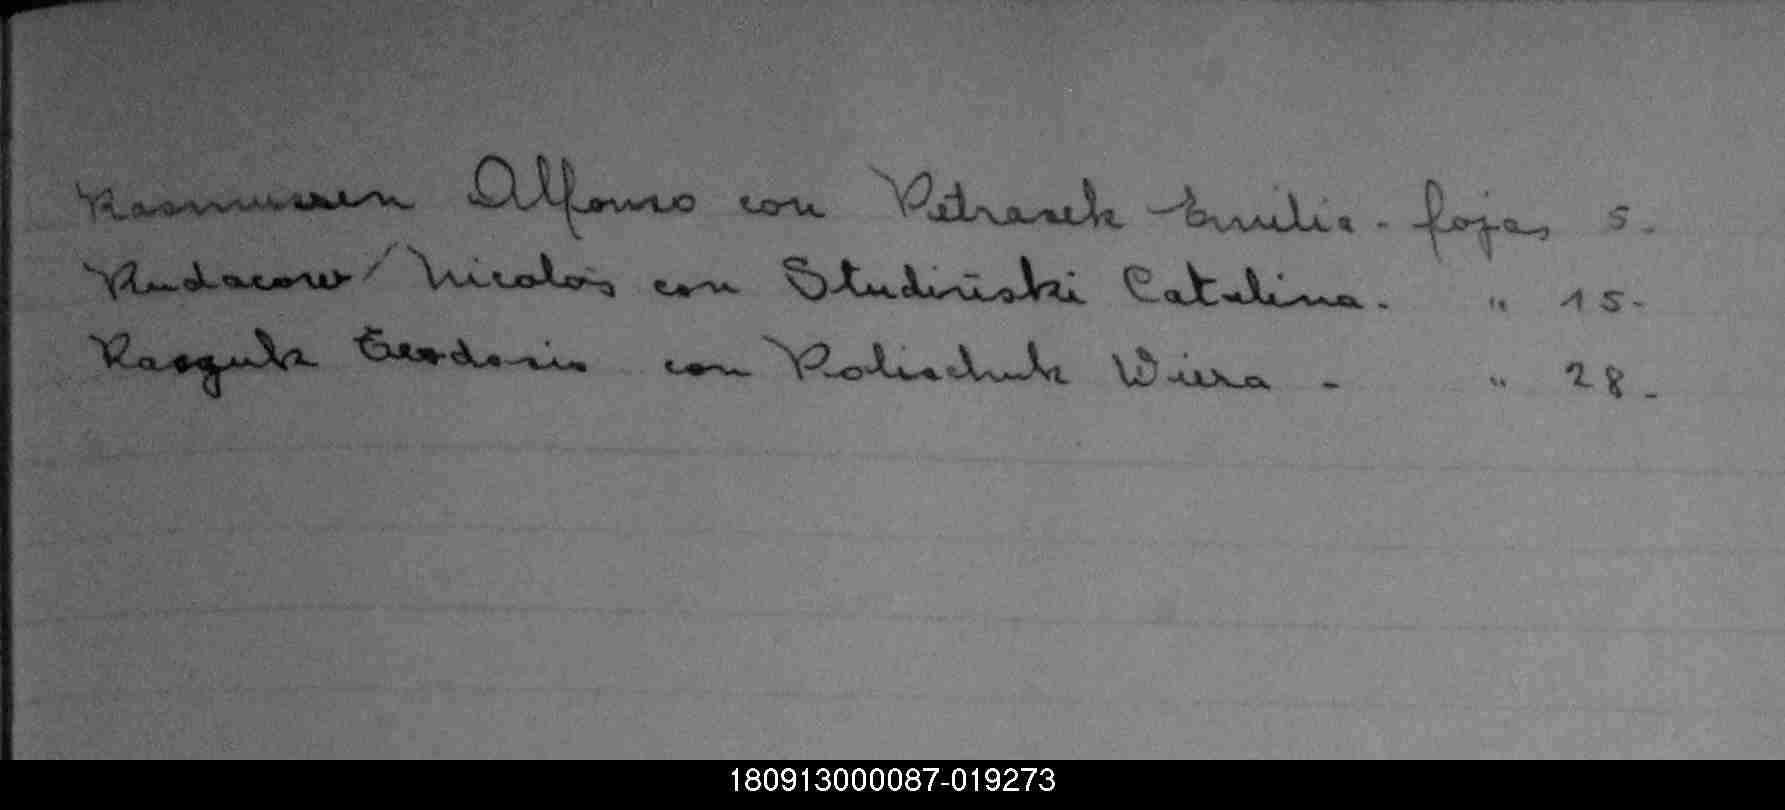 Rasmussen Alfonso con Petrasek Emilia - fojas 5.
Rudacow Nicolás con Studiński Catalina. " 15-
Rasguk Teodosio con Polischuk Wiera - " 28-
180913000087-019273